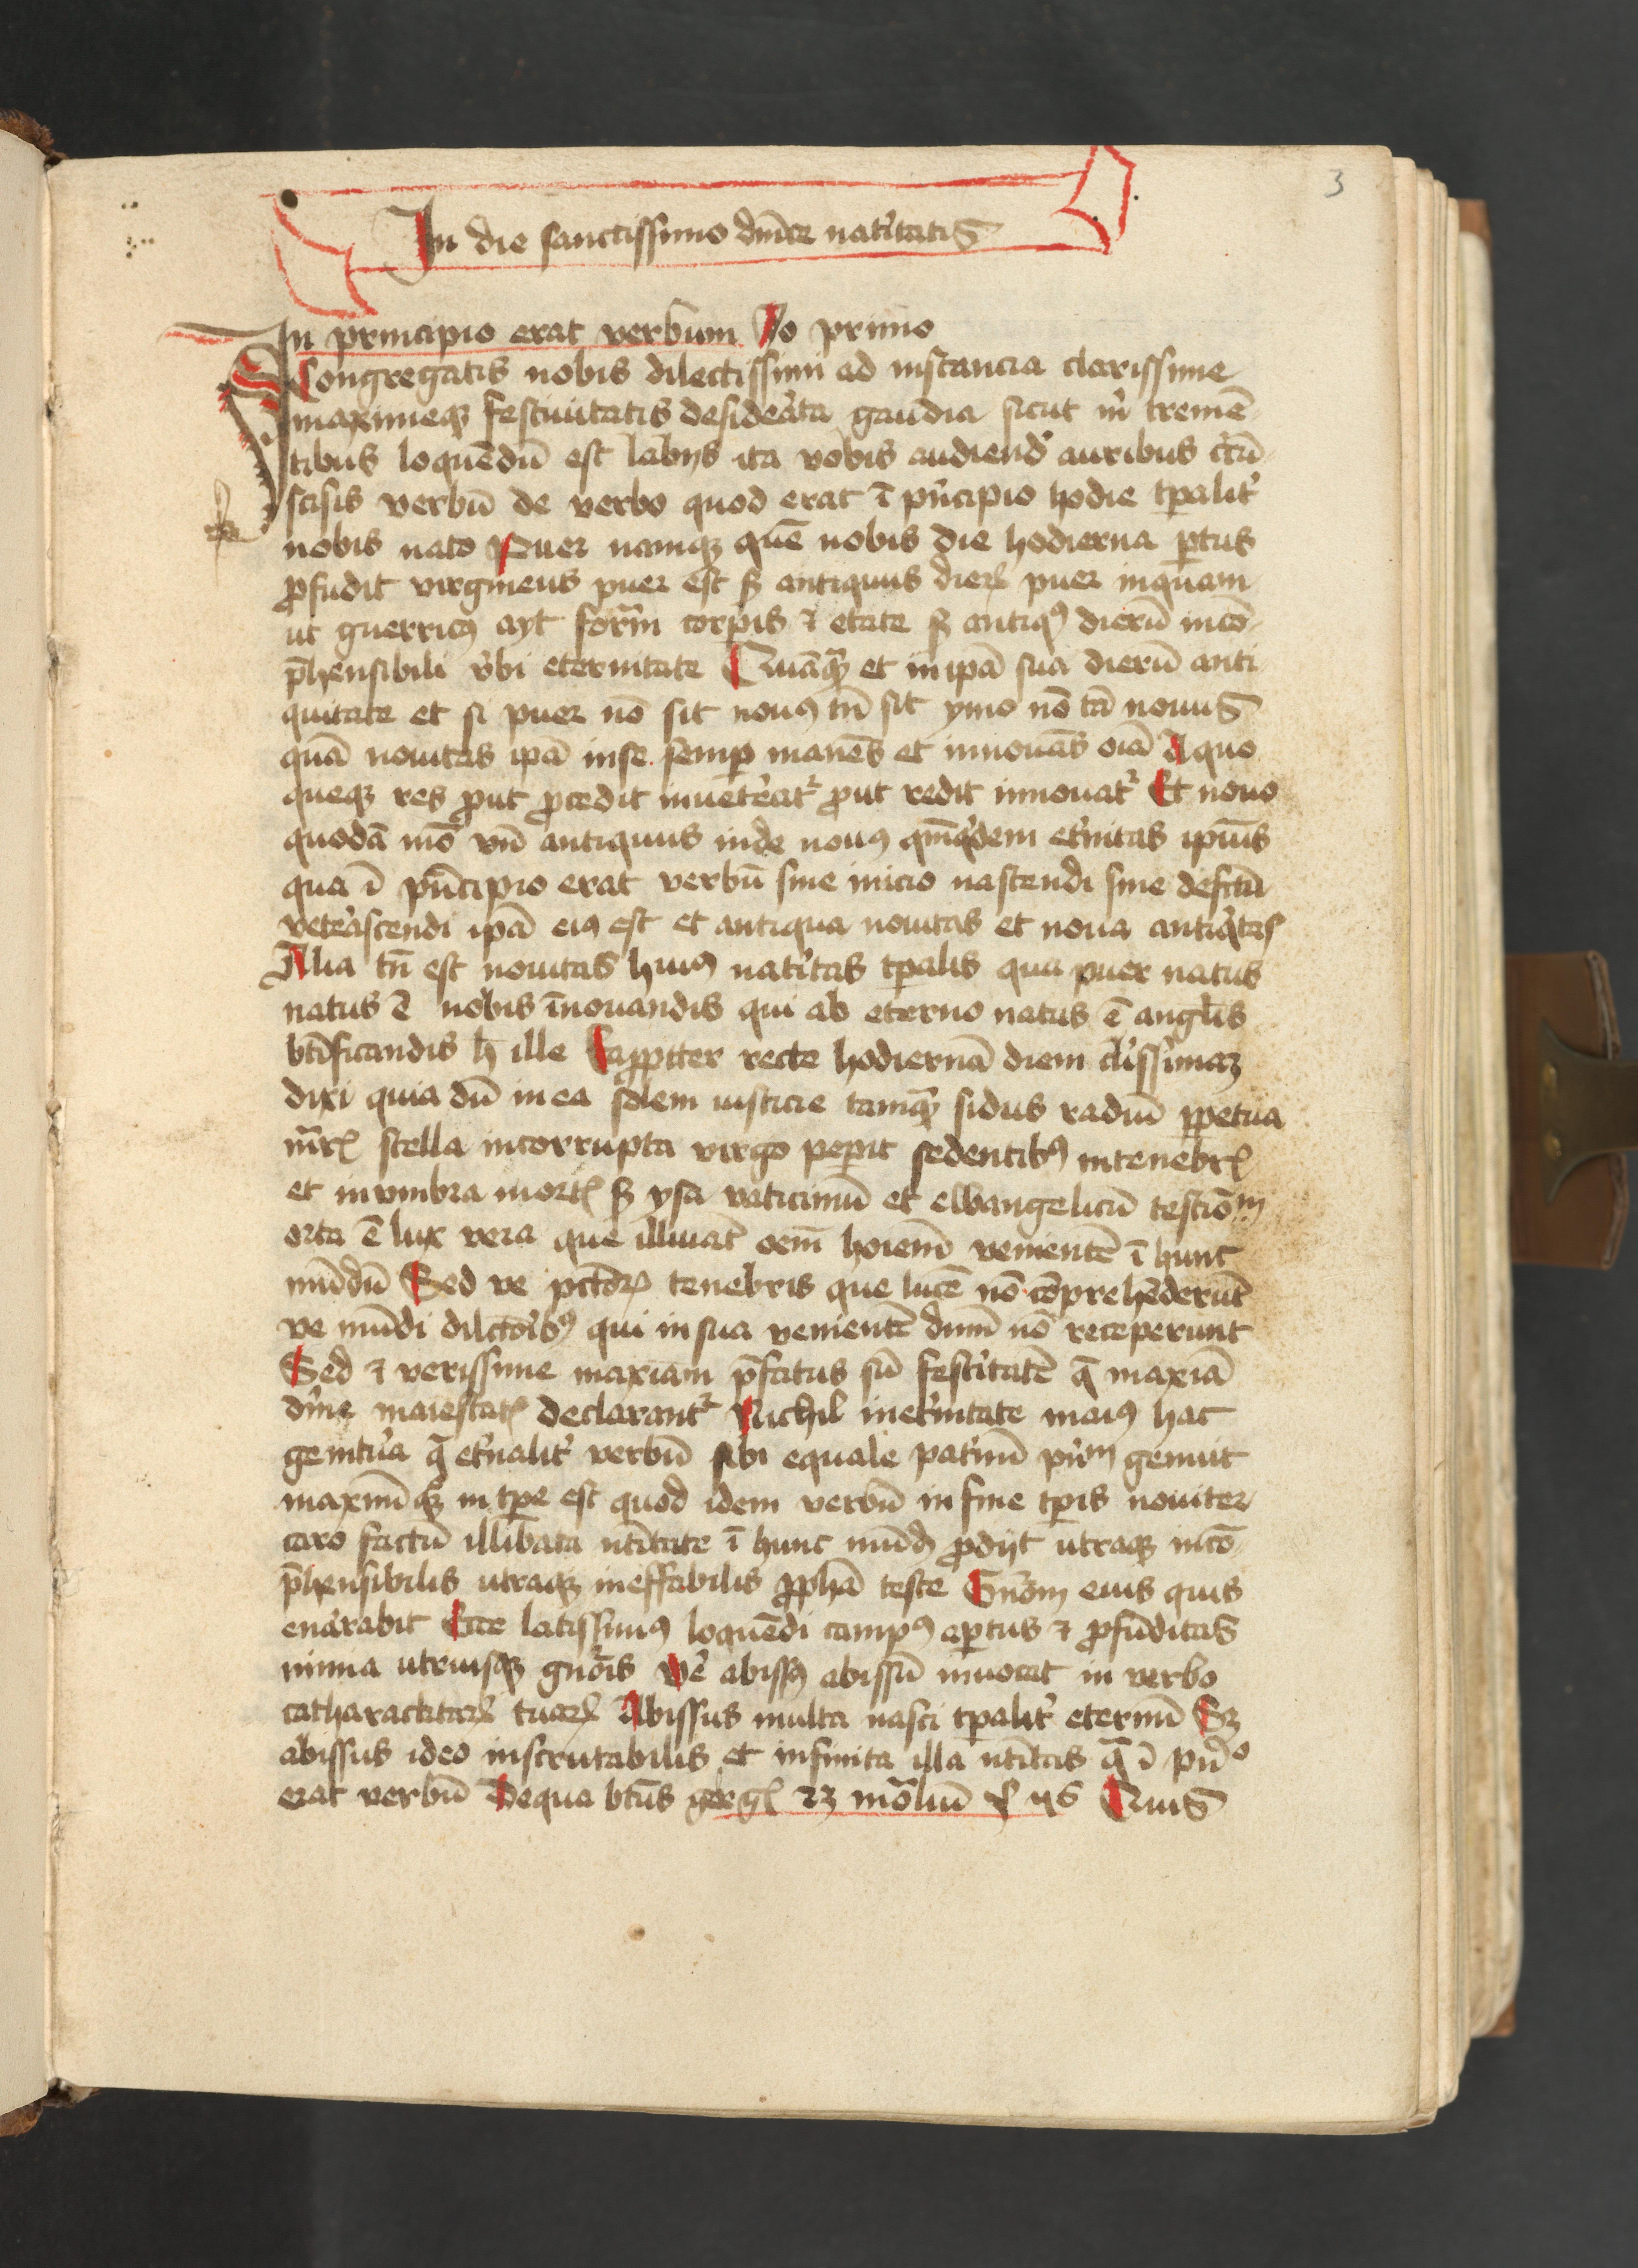 3
In die sanctissimo dnīce natiͥtatis
In principio erat verbum Jo primo
Congregatis nobis dilectissimi ad instancia clarissime
maximeqꝫ festiuitatis desideꝛata gaudia sicut in̄ tremē
tibus loquēdū est labijs ita vobis audiend' auribus cͥcū
scisis verbū de verbo quod erat ī pͥncipio hodie tꝑalit'
nobis nato Puer namqꝫ quē nobis die hodierna ꝑtus
ꝓfudit virgineus puer est sꝫ antiquus dieꝝ puer inquam
ut guerricꝰ ayt forma corꝑis ⁊ etate sꝫ antiqꝰ dierū incō
p̄hensibili v̓bi eternitate Quāqͣꝫ et in ip̄a sua dierū anti
quitate et si puer nō sit nouꝰ tn̄ sit ymo nō tā nouus
quā nouitas ip̄a in se semꝑ manēs et innouās oīa A quo
queqꝫ res ꝓut ꝓcedit inueterat᷑ ꝓut redit innouat᷑ Et nouo
quodā mō vn̄ antiquus inde nouꝰ qm̄qͥdem et'nitas ipīus
qua ī pͥncipio erat verbū sine inicio nascendi sine defectū
vet'ascendi ip̄a eiꝰ est et antiqua nouitas et noua antiqͥtas
Alia tn̄ est nouitas huiꝰ natiͥtas tꝑalis qua puer natus
natus ē nobis īnouandis qui ab eterno natus ē angl̄is
btīficandis h̄ ille Igr̄ recte hodiernā diem cl'issimaꝫ
dixi quia dū in ea solem iusticie tamqͣꝫ sidus radiū ꝑpetua
mr̄ꝭ stella incorrupta virgo peꝑit sedentibꝰ in tenebrꝭ
et in vmbra mortꝭ sꝫ ysa vaticiniū et ewangelicū testiōm
orta ē lux vera que illūiat oēm hoiem̄ venientē ī hunc
mūdū Sed ve pctōꝝ tenebris que lucē nō cōprehēderūt
ve mūdi dilctōibꝰ qui in sua venientē dnm̄ nō receperunt
Sed ⁊ verissime maxiam p̄fatus sū festiͥtatē qͣ maxiā
diͥne maiestatꝭ declarant᷑ Nichil in et'nitate maiꝰ hac
genitura qͣ et'nalit' verbū sibi equale pat'nū pͥnm genuit
maximū qꝫ in tꝑe est quod idem verbū in fine tꝑis nouiter
caro factū illibata vtītate ī hunc mūdꝫ ꝓdijt utraqꝫ incō
p̄hensibilis utraqꝫ ineffabilis ꝓpha teste Gn̄om eius quis
enarabit Ecce latissimꝰ loquēdi campꝰ aꝑtus ⁊ ꝓfūditas
nimia utriusqꝫ gn̄ois Ve' abissꝰ abissū inuocat in verbo
catharactaꝝ tuaꝝ Abissus multa nasci tꝑalit' eternū Sꝫ
abissus ideo inscrutabilis et infinita illa vtītas qͣ ī pͥnͦ
erat verbū De qua btūs greg 23 mōliū c 96 Quis